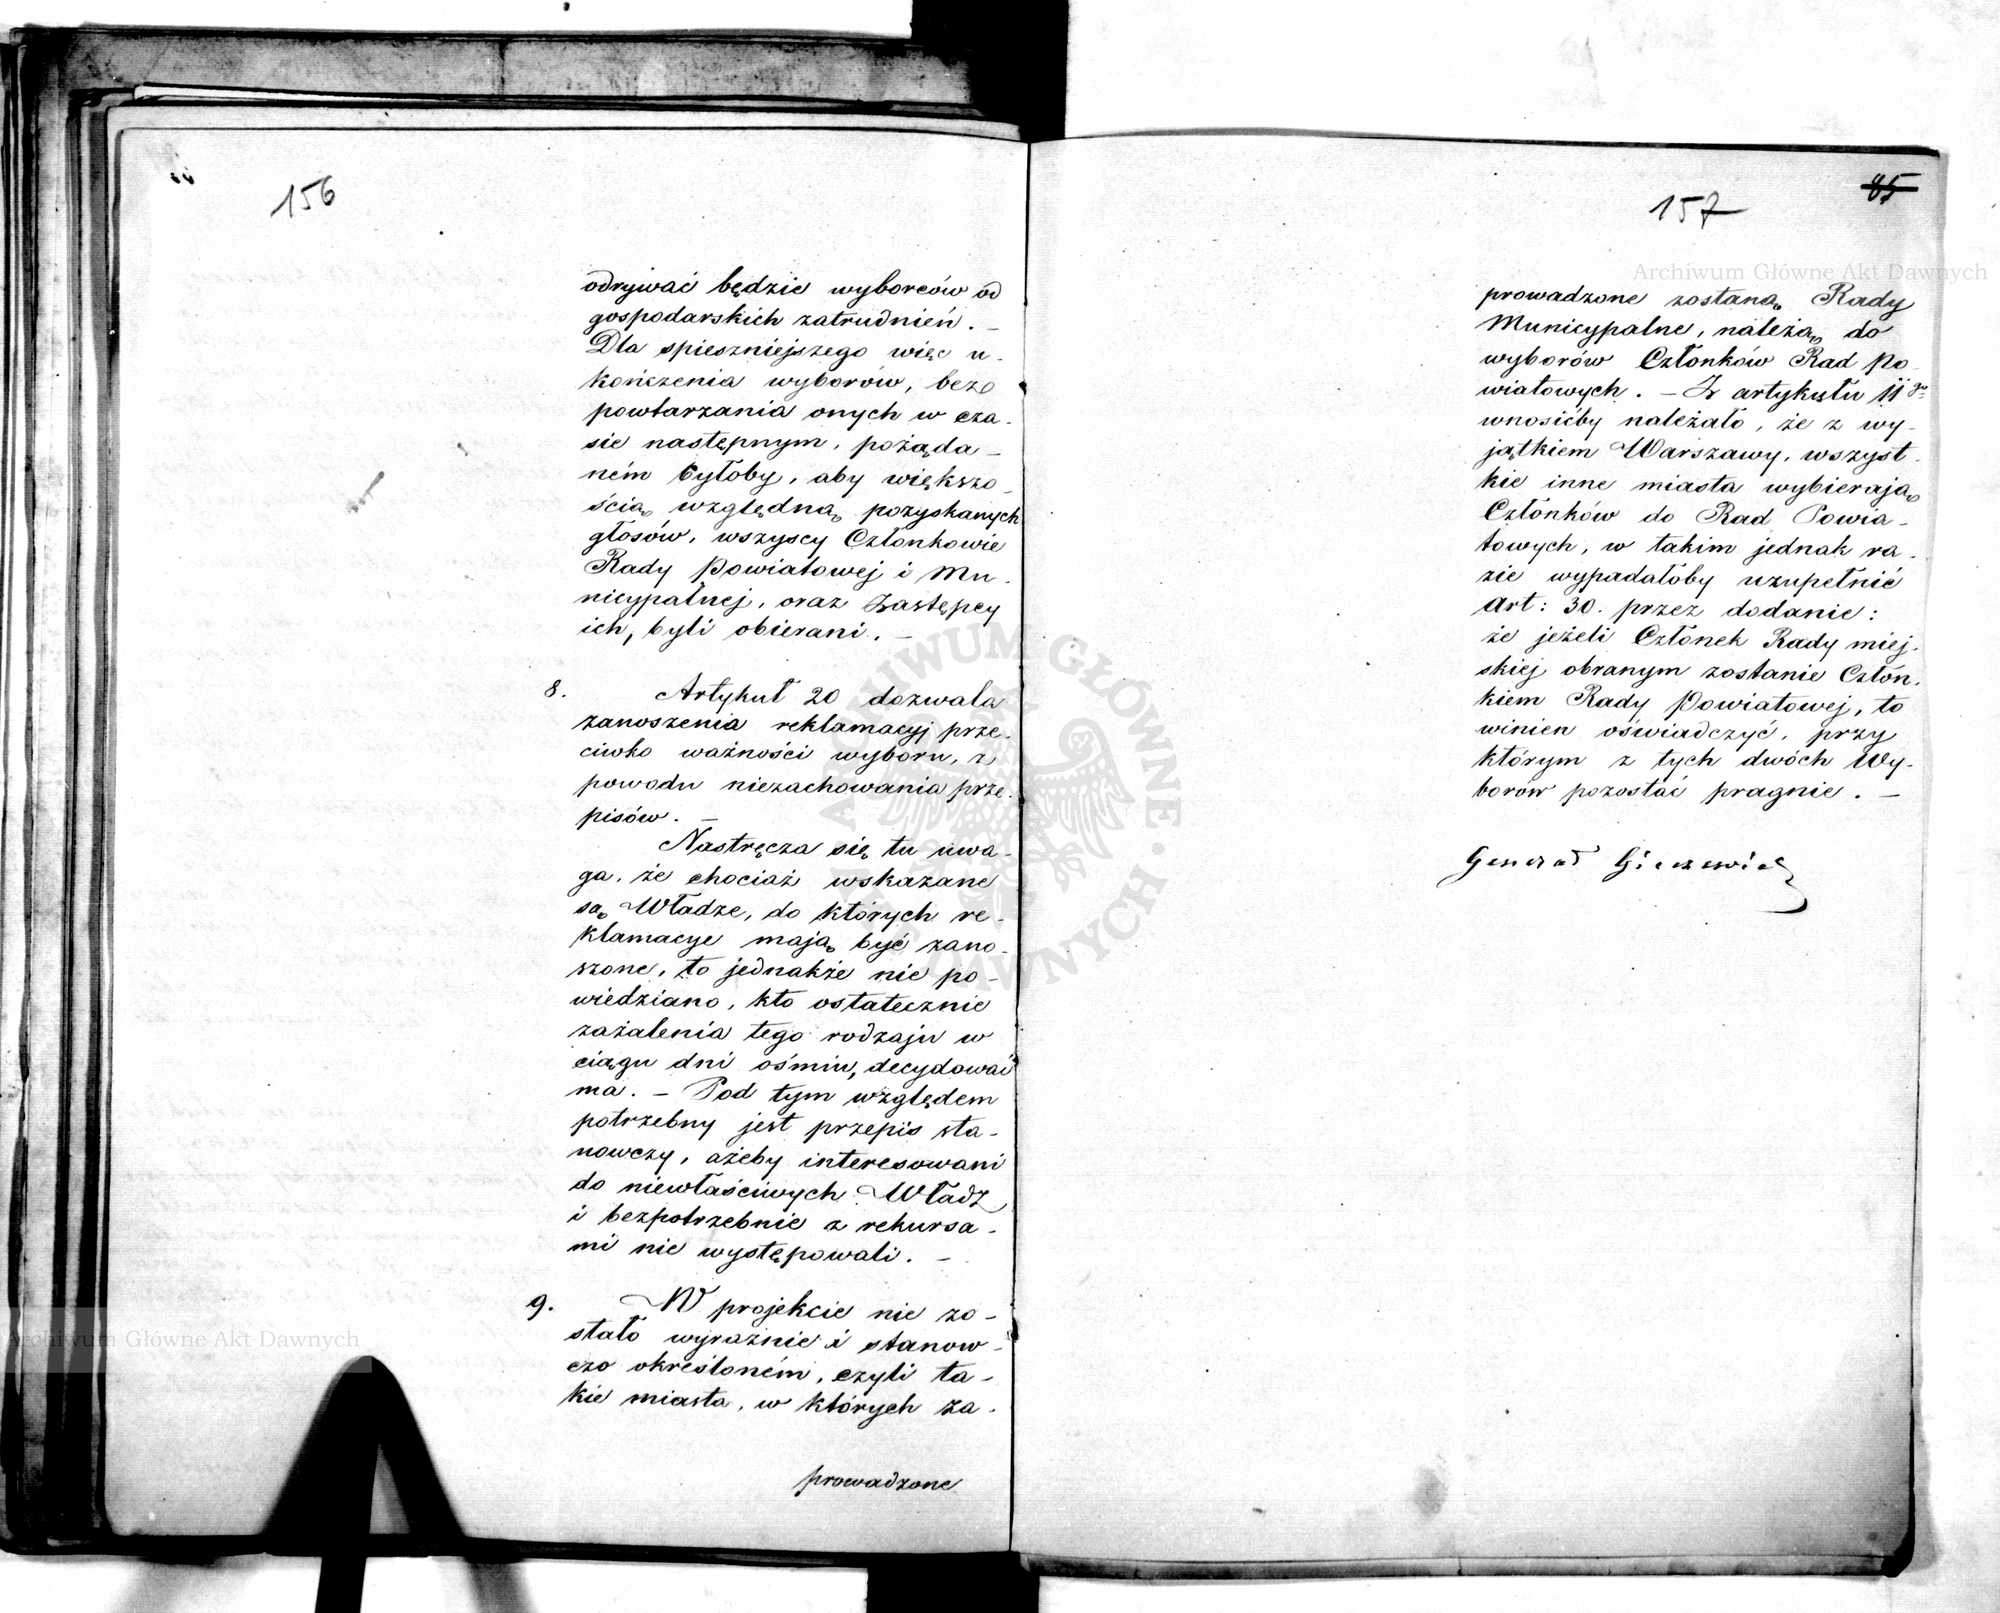 156
odrywać będzie wyborców od
gospodarskich zatrudnień. –
Dla spieszniejszego więc u-
kończenia wyborów, bez
powtarzania onych w cza-
sie następnym, pożąda-
ném byłoby, aby większo-
ścią względną pozyskanych
głosów, wszyscy Członkowie
Rady Powiatowej i Mu-
nicypalnej, oraz Zastępcy
ich, byli obierani. –
8. Artykuł 20 dozwala
zanoszenia reklamacyj prze-
ciwko ważności wyboru, z
powodu niezachowania prze-
pisów. –
Nastręcza się tu uwa-
ga, że chociaż wskazane
są Władze, do których re-
klamacye mają być zano-
szone, to jednakże nie po-
wiedziano, kto ostatecznie
zażalenia tego rodzaju w
ciągu dni ośmiu, decydować
ma. – Pod tym względem
potrzebny jest przepis sta-
nowczy, ażeby interesowani
do niewłaściwych Władz
i bezpotrzebnie z rekursa-
mi nie występowali. –
9. W projekcie nie zo-
stało wyraźnie i stanow-
czo określoném, czyli ta-
kie miasta, w których za-
prowadzone
85
157
prowadzone zostaną Rady
Municypalne, należą do
wyborów Członków Rad Po-
wiatowych. – Z artykułu 11go
wnosićby należało, że z wy-
jątkiem Warszawy, wszyst-
kie inne miasta wybierają
Członków do Rad Powia-
towych, w takim jednak ra-
zie wypadałoby uzupełnić
Art: 30. przez dodanie:
że jeżeli Członek Rady miej-
skiej obranym zostanie Człon-
kiem Rady Powiatowej, to
winien oświadczyć, przy
którym z tych dwóch Wy-
borów pozostać pragnie. –
Generał Gieczewicz
Archiwum Główne Akt Dawnych
Archiwum Główne Akt Dawnych
ARCHIWUM GŁÓWNE AKT DAWNYCH